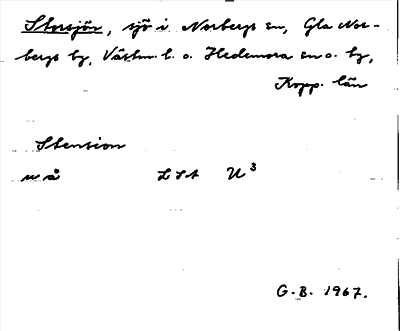 Storsjön, sjö i Norbergs sn, Gla Nor-
bergs bg, Västm. l. o. Hedemora sn o. bg,
Kopp. län
Stension
w å LSA U³
G.B. 1967.